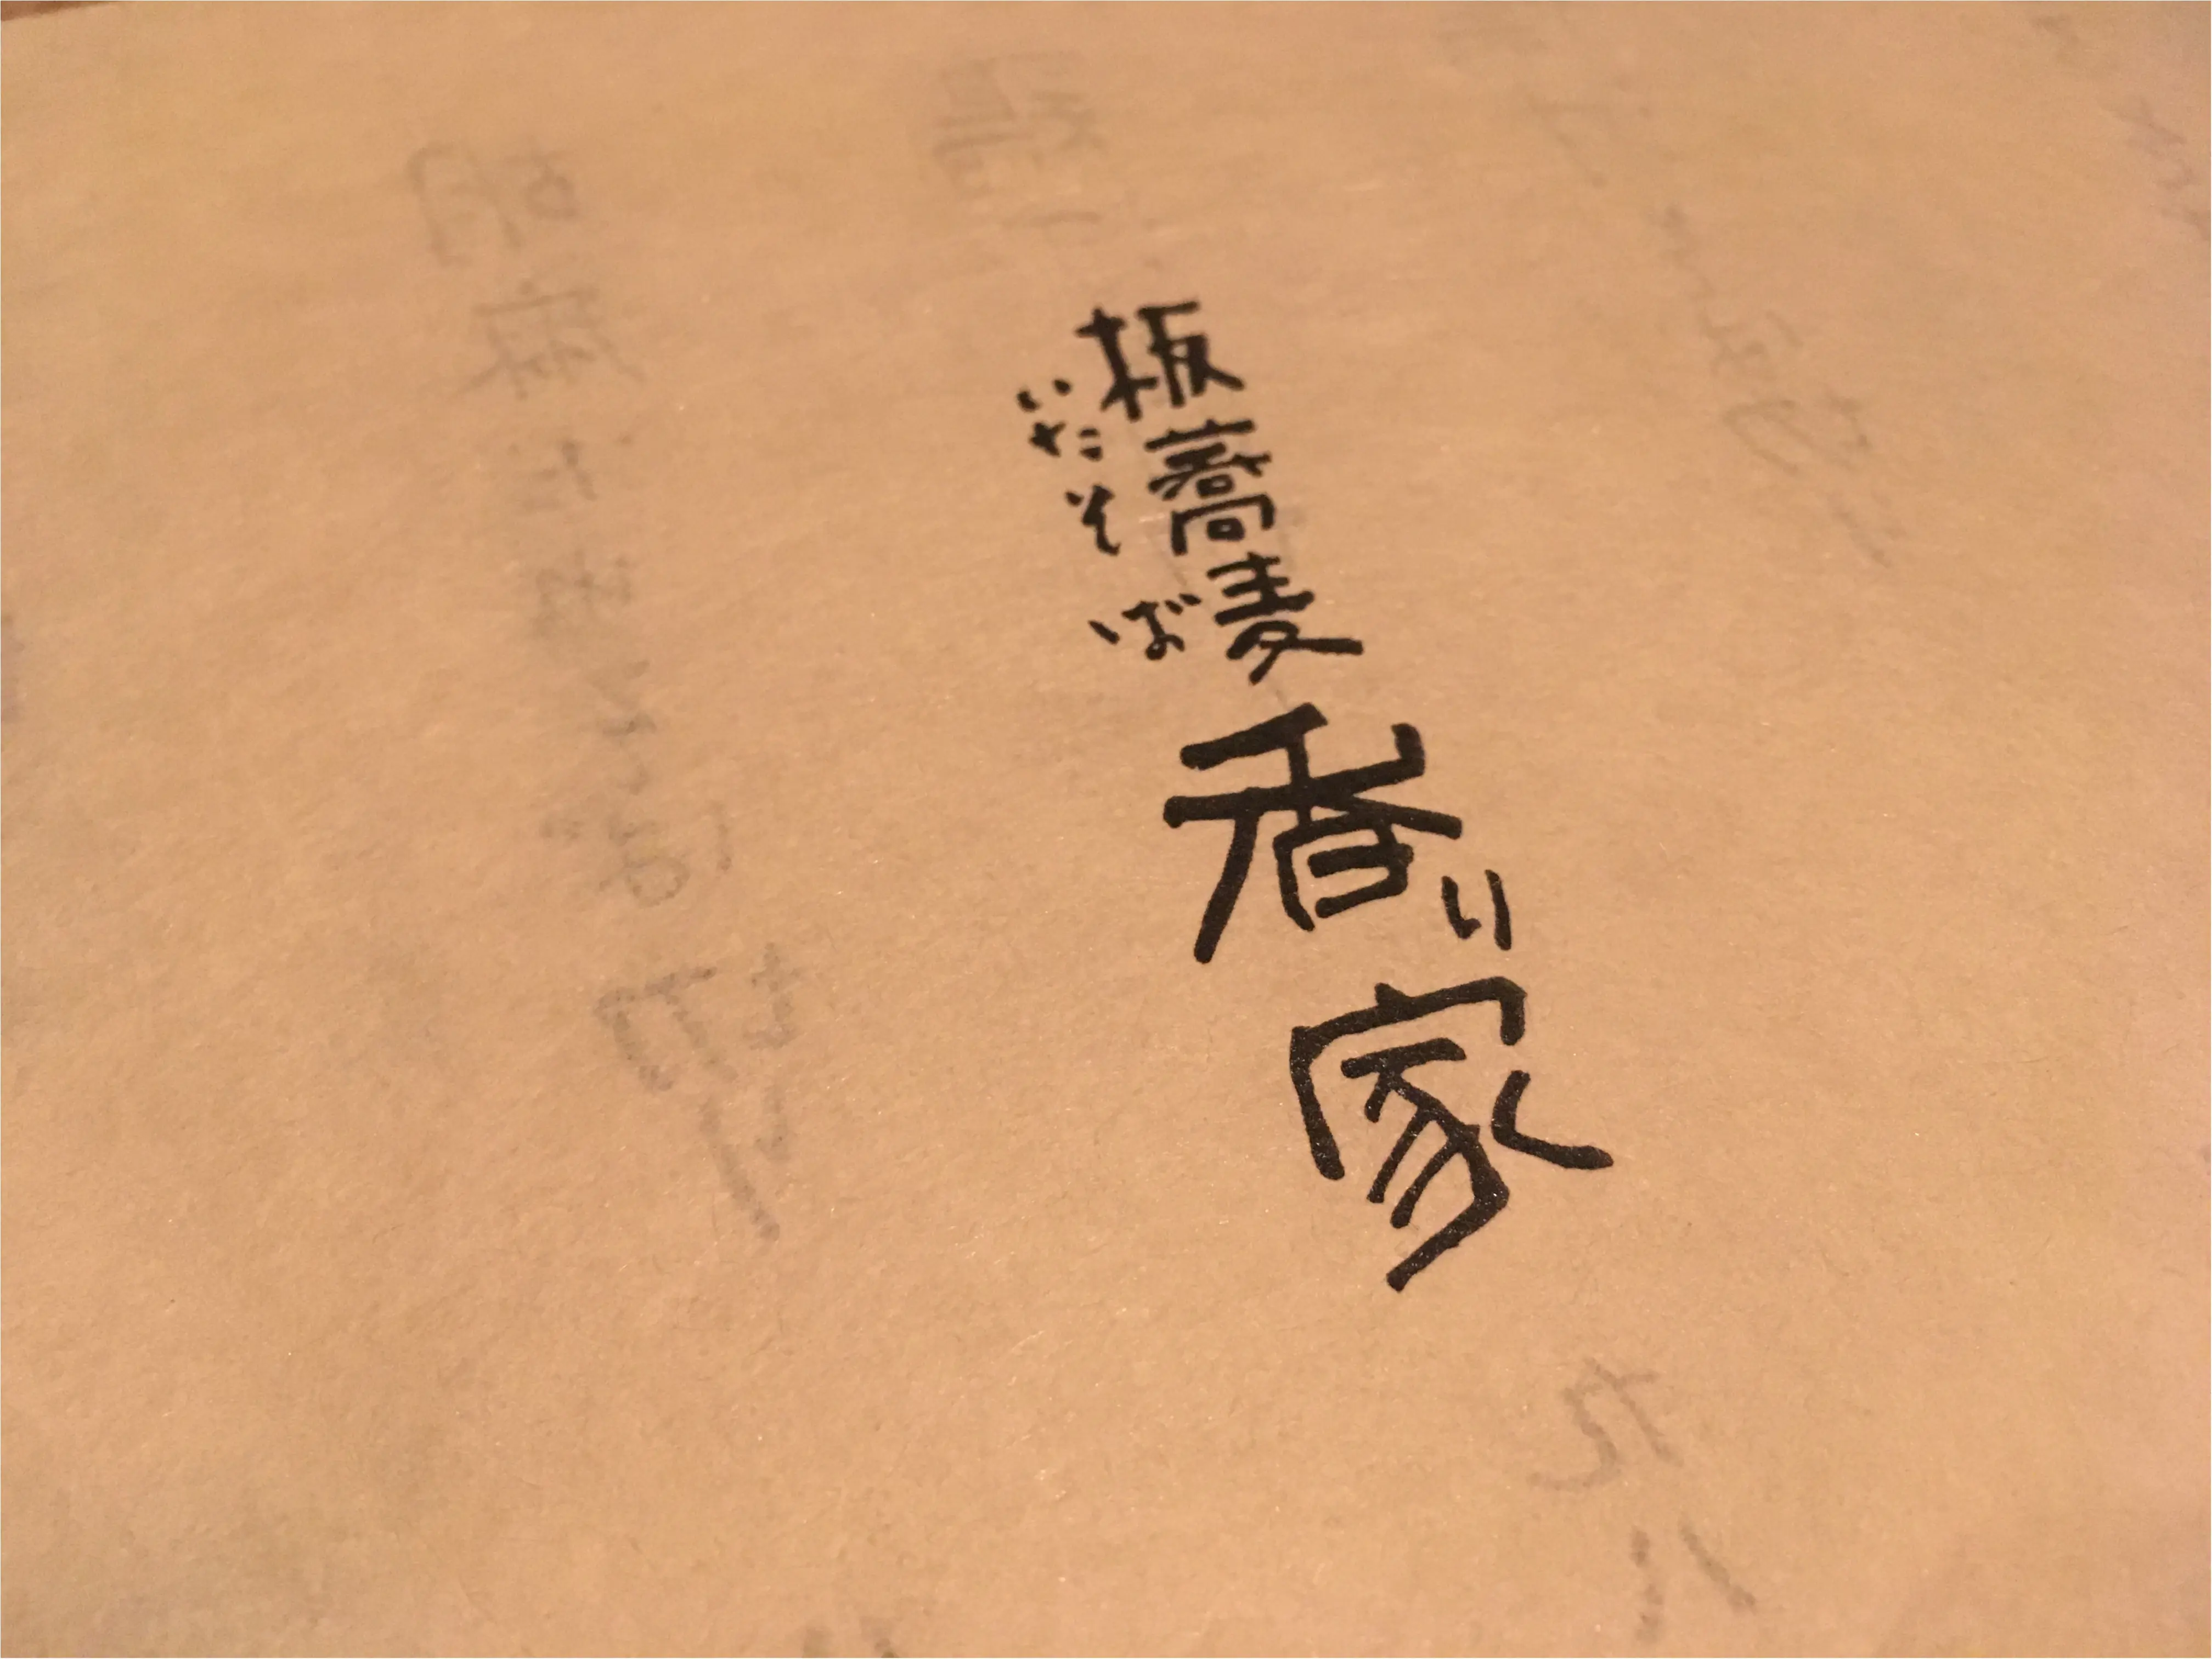 板蕎麦
いたそば
香り家